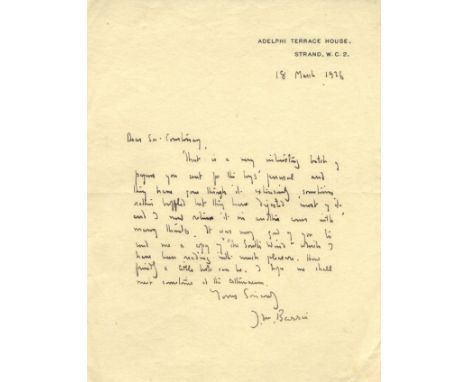 ADELPHI TERRACE HOUSE,
STRAND, W.C.2.
18 March 1926
Dear Sir Courtenay,
That is a very interesting batch of
papers you sent for the boys' perusal and
they have gone through it extensively sometimes
rather baffled but they have digested most of it
and I now return it in another cover with
many thanks. It was very good of you to
send me a copy of "The South Wind" which I
have been reading with much pleasure. How
a little book can be. I hope we shall
meet sometimes at the Athenaeum.
Yours Sincerely
J. M. Barrie